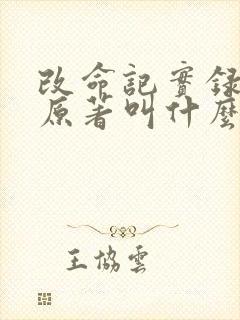 改命記實録
原著叫什麽
王協雲